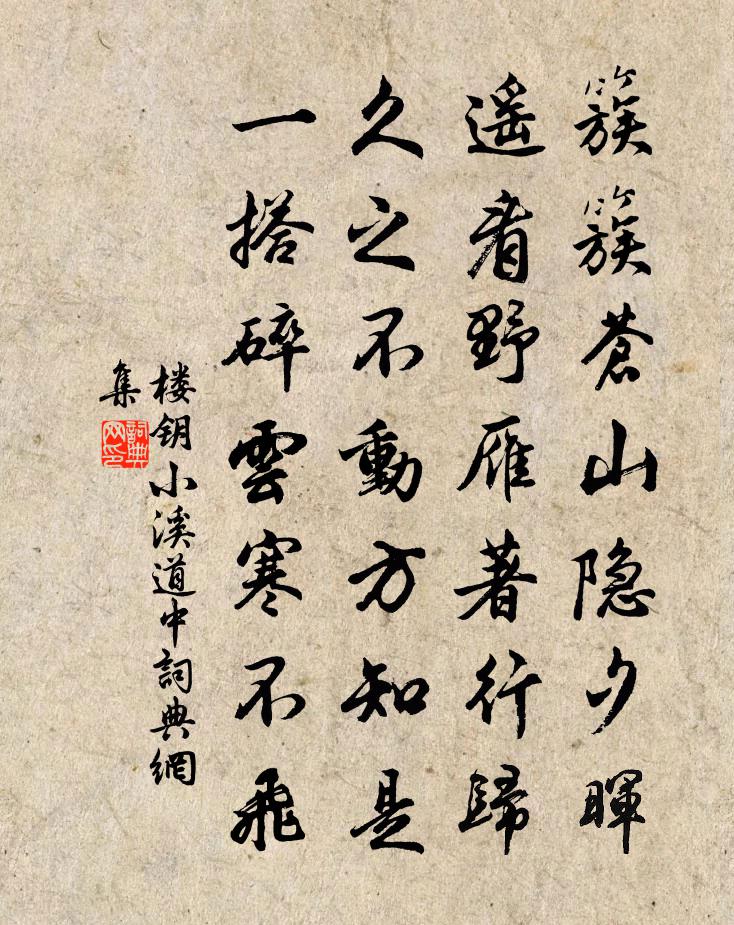 簇簇蒼山隐夕暉
遥看野雁著行歸
久之不動方知是
一搭碎雲寒不飛
楼钥小溪道中詞典網
集
詞典
网印